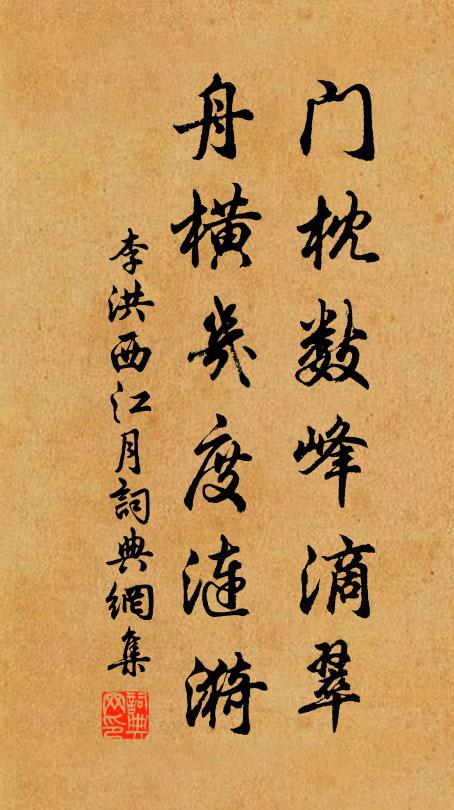 门枕数峰滴翠
舟横几度涟漪
李洪西江月詞典網集
詞典网印